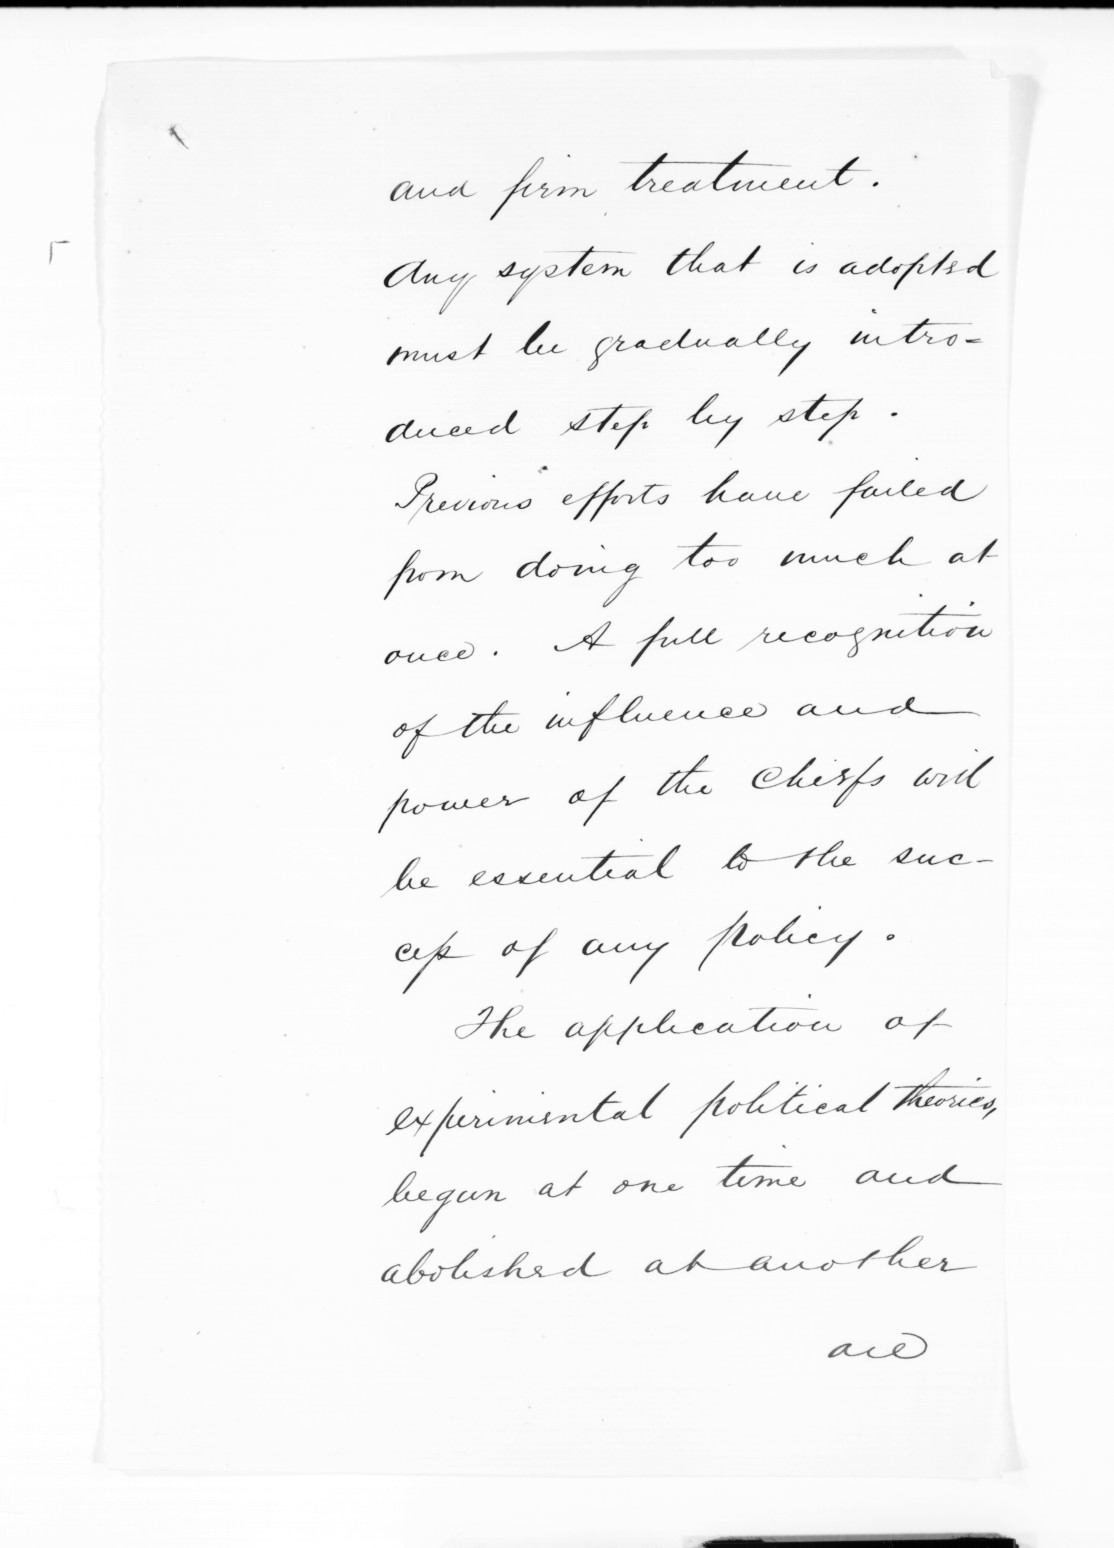 and firm treatment.
Any system that is adopted
must be gradually intro=
duced step by step.
Previous efforts have failed
from doing too much at
once. A full recognition
of the influence and
power of the Chiefs will
be essential to the suc-
cess of any policy.
The application of
experimental political theories,
begun at one time and
abolished at another
are